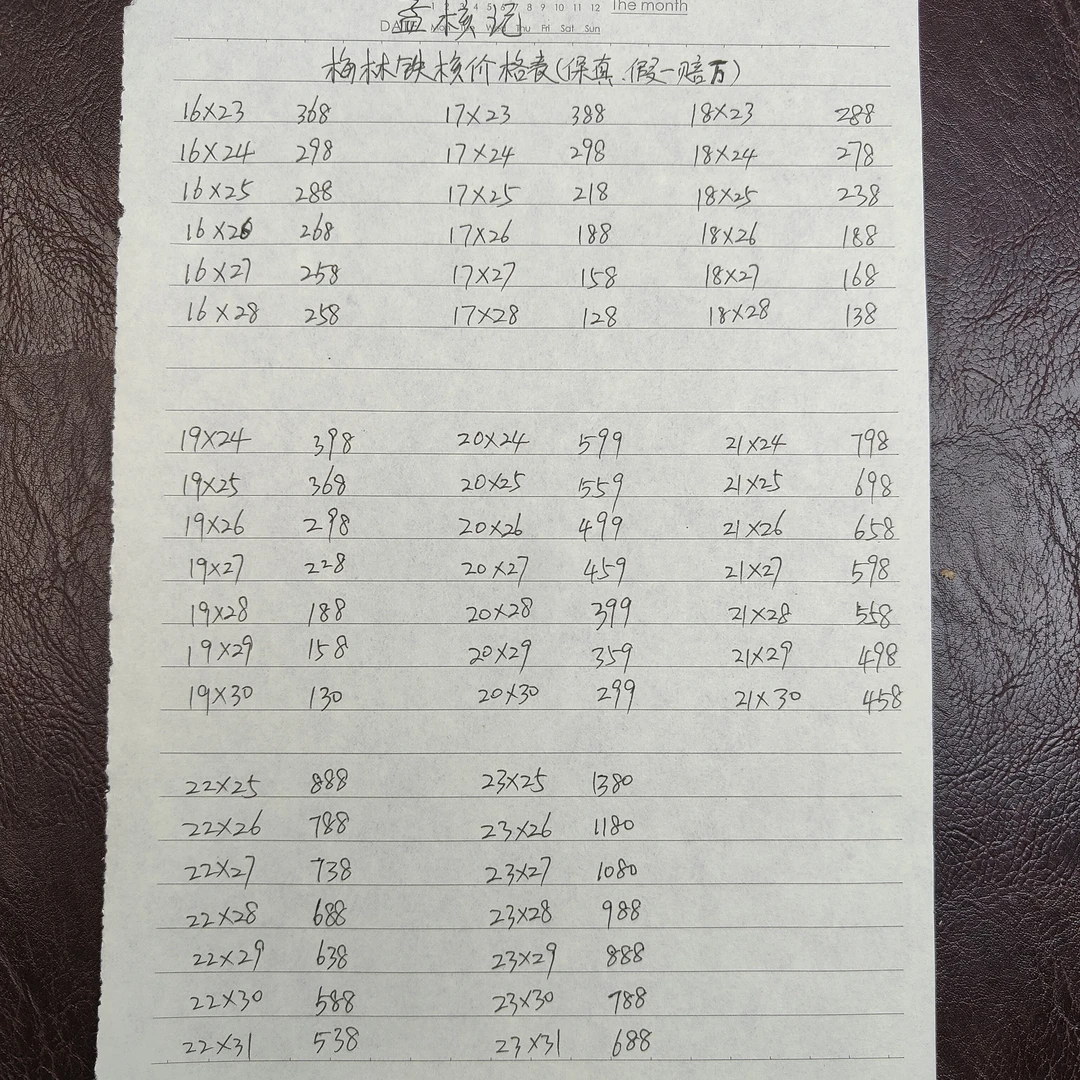 1 2 3 4 5 6 7 8 9 10 11 12 The month
孟核记
DATE Mon Tue Wed Thu Fri Sat Sun
梅林铁核价格表(保真、假一赔万)
16×23 368 17×23 388 18×23 288
16×24 298 17×24 298 18×24 278
16×25 288 17×25 218 18×25 238
16×26 268 17×26 188 18×26 188
16×27 258 17×27 158 18×27 168
16×28 258 17×28 128 18×28 138
19×24 398 20×24 599 21×24 798
19×25 368 20×25 559 21×25 698
19×26 298 20×26 499 21×26 658
19×27 228 20×27 459 21×27 598
19×28 188 20×28 399 21×28 558
19×29 158 20×29 359 21×29 498
19×30 130 20×30 299 21×30 458
22×25 888 23×25 1380
22×26 788 23×26 1180
22×27 738 23×27 1080
22×28 688 23×28 988
22×29 638 23×29 888
22×30 588 23×30 788
22×31 538 23×31 688